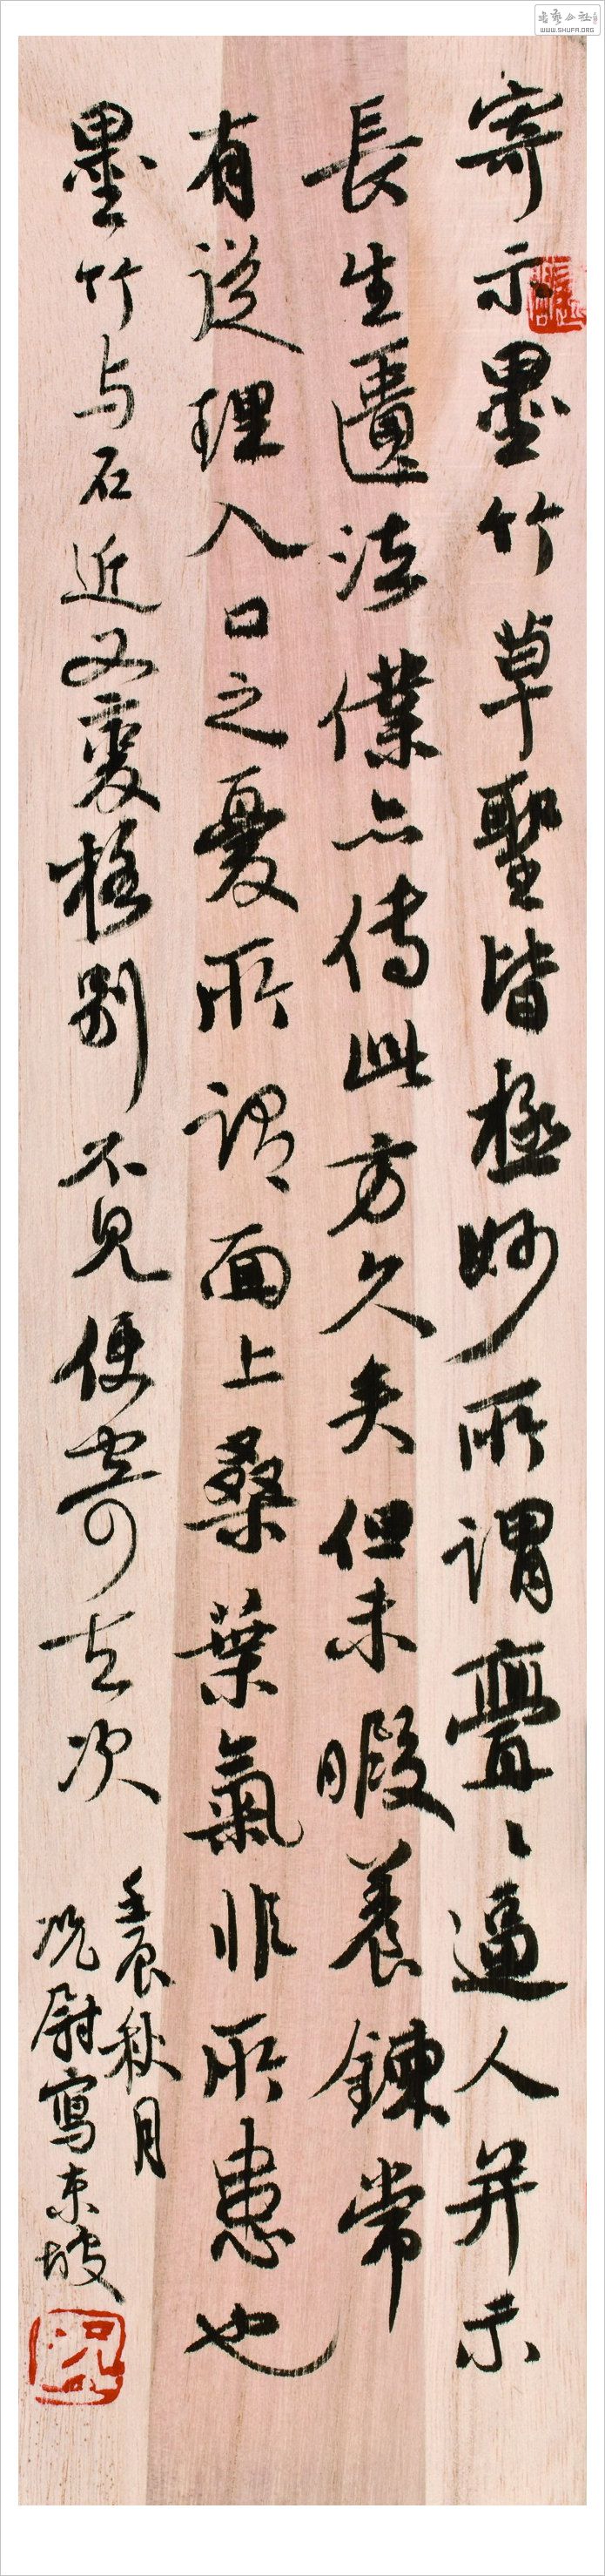 寄示墨竹草聖皆極妙所謂亹亹逼人并示
長生匾法僕亦傳此方久矣但未暇養鍊常
有從理入口之憂所謂面上桑葉氣非所患也
墨竹与石近又變格別不見便寄可左次
壬辰秋月
况尉寫东坡
WWW.SHUFA.ORG